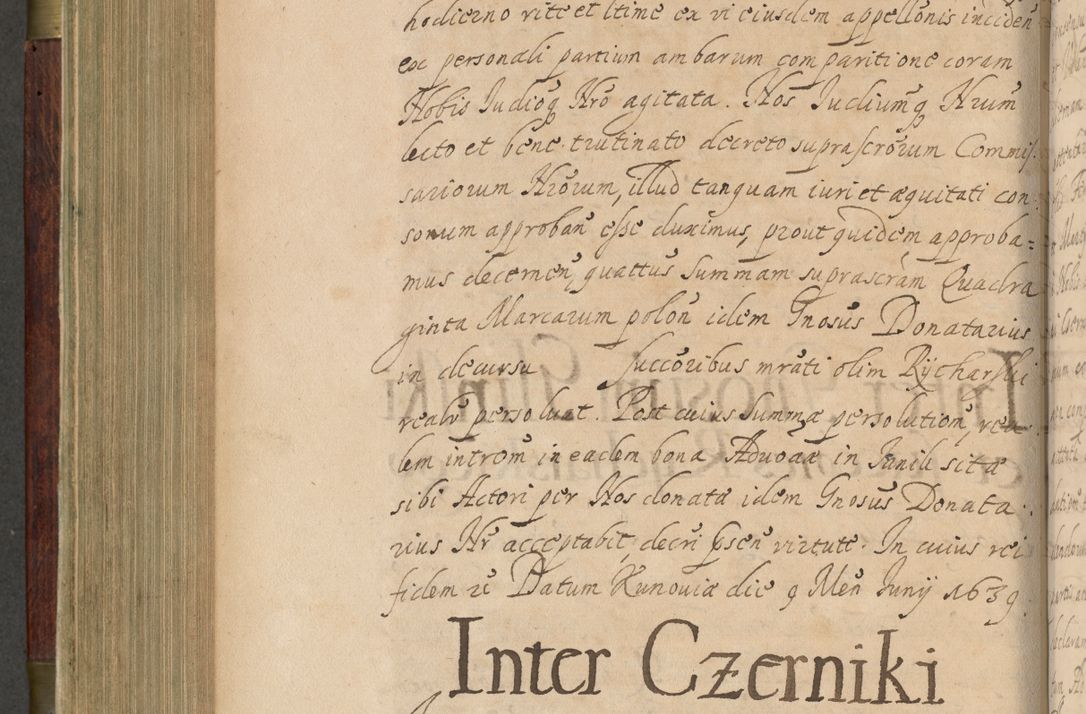 hodierno rite et ltime ex vi eiusdem appellõnis inciden̄
ex personali partium ambarum comparitione coram
Nobis Iudioq̨ Nrõ agitata. Nos Iudiumq̨ Nrum
lecto et bene trutinato decreto suprascrõrum Commis
sariorum Nrõrum, illud tanquam iuri et æquitati con
sonum approban̄ esse duximus, prout quidem approba=
mus decernen̄, quattus Summam suprascrãm Quadra
ginta Marcarum polon̄ idem Gnosus Donatarius
in decursu succõribus mrati olim Rycharski
realr̃ persoluat. Post cuius Summæ persolution̄, rea
lem introm̄ in eadem bona Aduoãæ in Iunik sitæ
sibi Actori per Nos donatæ idem Gnosus Donata
rius Nr̃ acceptabit, decri p̄sen̄ virtute. In cuius rei
fidem ꝛc Datum Kunoviæ die 9 Men̄ Iunij 1639
Inter Czerniki